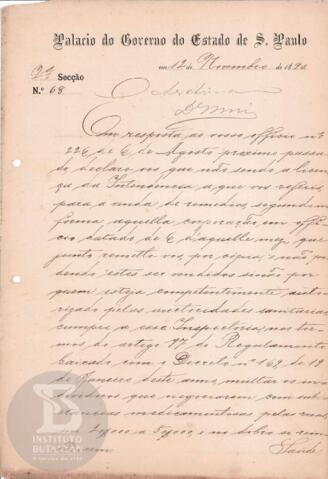 Palacio do Governo do Estado de S. Paulo
em 12 de Novembro de 1890
2ª Secção
N.º 68
Em resposta ao vosso officio nº
226 de 6 de Agosto proximo passa
do declaro vos que não sendo a licen
ça da Intendencia a que vos referis
para a venda de remedios, segundo in
forma aquella corporação em offi
cio datado de 6 d'aquelle mez, que
junto remetto vos, por cópia, e não po
dendo estes ser vendidos sinão por
quem esteja competentemente auto
rigado pelas autoridades sanitarias
cumpre a essa Inspectoria, nos ter
mos do artigo 77 do Regulamento
baixado com o Decreto nº 169 de 19
de Janeiro deste anno, multar os in
dividuos que negociarem com sub
stancias medicamentosas pelas ruas
e no dobro si
Saude
INSTITUTO
BUTANTAN
A serviço da vida